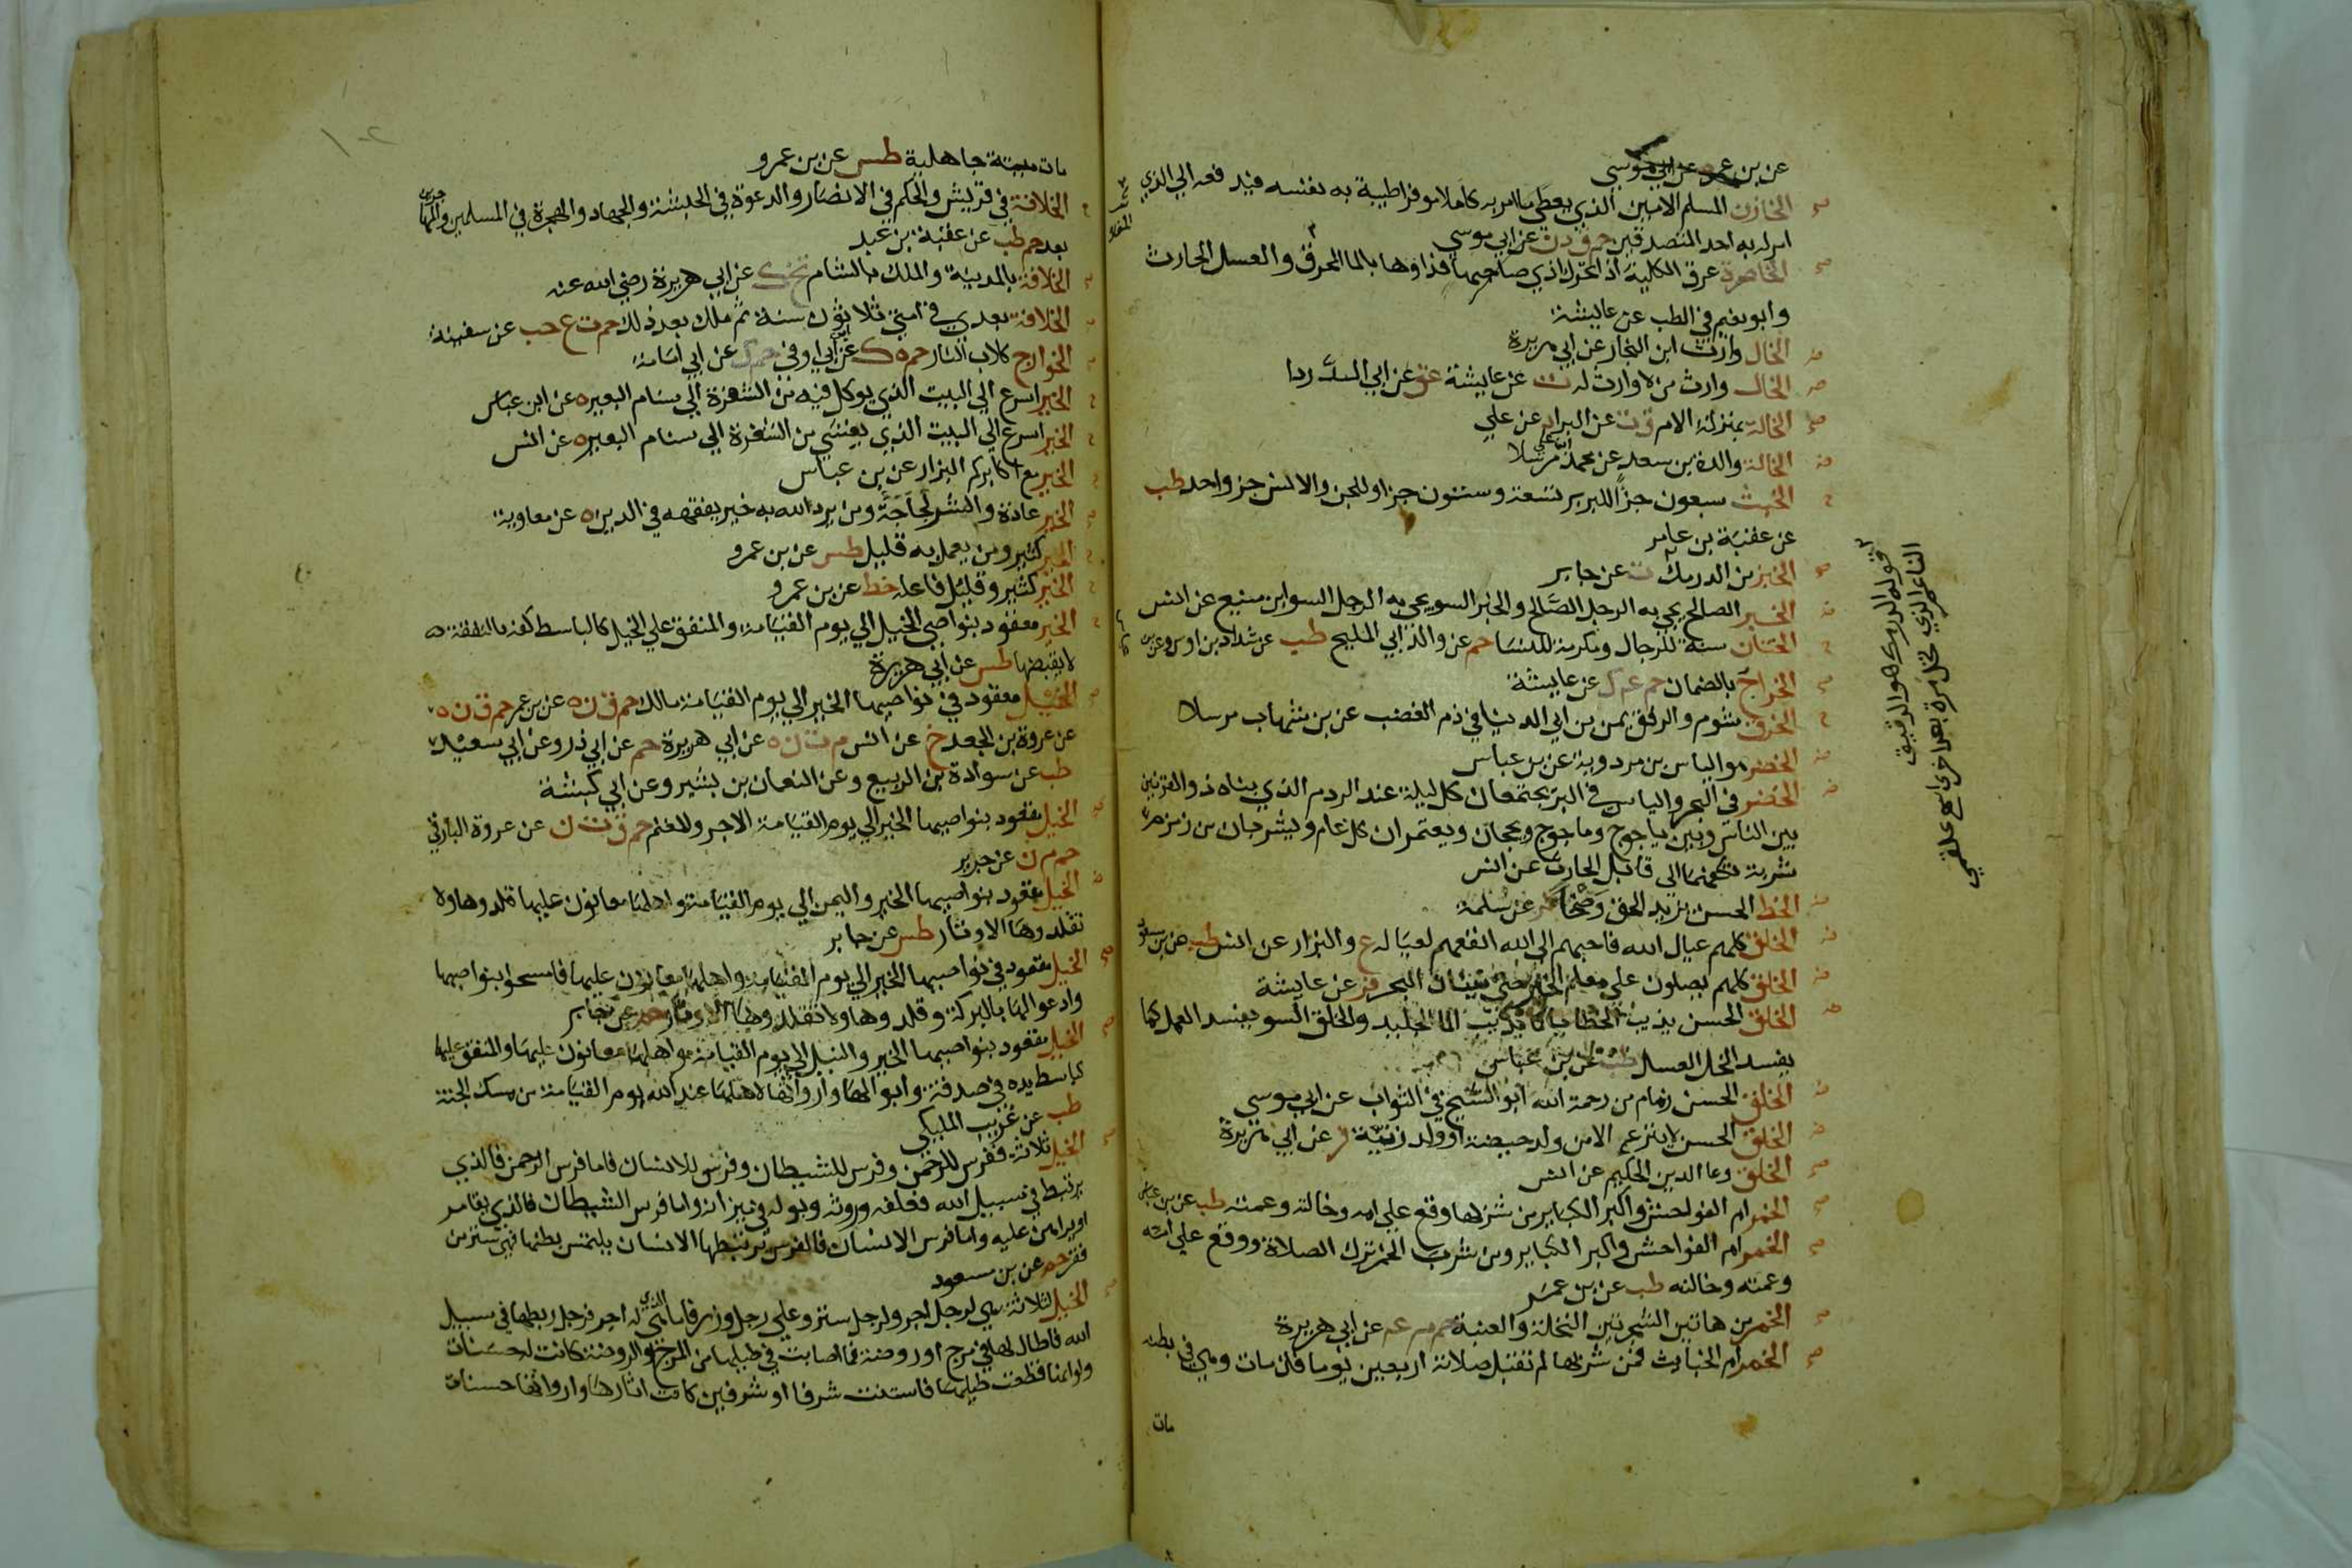 عن بن عمرو عن ابي موسي
الخازن المسلم الامين الذي يعطي ما امر به كاملا موفرا طيبة به نفسه فيد فعه الي الذي
امر له به احد المتصدقين حم ق د ن عن ابي موسي
الخاصرة عرق الكلية اذا تحرك اذي صاحبها فداوها بالما المحرق والعسل الحارث
وابو نعيم في الطب عن عايشة
الخال وارث ابن النجار عن ابي هريرة
الخال وارث من لا وارث له ت عن عايشة عق عن ابي الدردا
الخالة بمنزلة الام ق ت عن البرا د عن علي
الخالة والدة بن سعد عن محمد بن علي مرسلا
الخبث سبعون جزأ للبربر تسعة وستون جزا وللجن والانس جز واحد طب
عن عقبة بن عامر
الخبز من الدرمك ت عن جابر
الخبر الصالح يجي به الرجل الصالح والخبر السو يجي به الرجل السو ابن منيع عن انس
الختان سنة للرجال ومكرمة للنسا حم عن والد ابي المليح طب عن شداد بن اوس وعن بن
عباس
الخراج بالضمان حم عم ك عن عايشة
الخرق شوم والرفق يمن بن ابي الدنيا في ذم الغضب عن بن شهاب مرسلا
الخضر هو الياس بن مردوية عن بن عباس
الخضر في البحر والياس في البر يجتمعان كل ليلة عند الردم الذي بناه ذو القرنين
بين الناس وبين ياجوج وماجوج ويحجان ويعتمران كل عام ويشربان من زمزم
شربة تكفيهما الي قابل الحارث عن انس
الخط الحسن يزيد الحق وضحا فر عن سلمة
الخلق كلهم عيال الله فاحبهم الي الله انفعهم لعياله ع والبزار عن انس طب عن بن مسعود
الخلق كلهم يصلون علي معلم الخير حتي نينان البحر فر عن عايشة
الخلق الحسن يذيب الخطايا كما يذيب الما الجليد والخلق السو يفسد العمل كما
يفسد الخل العسل طب عن بن عباس
الخلق الحسن زمام من رحمة الله ابو الشيخ في الثواب عن ابي موسي
الخلق الحسن لا ينزع الا من ولد حيضة او ولد زنية فر عن ابي هريرة
الخلق وعا الدين الحكيم عن انس
الخمر ام الفواحش واكبر الكباير من شربها وقع علي امه وخالته وعمته طب عن بن عباس
الخمر ام الفواحش واكبر الكباير ومن شرب الخمر ترك الصلاة ووقع علي امه
وعمته وخالته طب عن بن عمر
الخمر من هاتين الشجرتين النخلة والعنبة حم م عم عن ابي هريرة
الخمر ام الخبايث فمن شربها لم تقبل صلاته اربعين يوما فان مات وهي في بطنه
مات
قوله الدرمك هو الدقيق
الناعم الذي نخل مرة بعد اخري اهـ علقمي
مات ميتة جاهلية طس عن بن عمرو
الخلافة في قريش والحكم في الانصار والدعوة في الحبشة والجهاد والهجرة في المسلمين والمهاجرين
بعد حم طب عن عقبة بن عبد
الخلافة بالمدينة والملك بالشام تخ ك عن ابي هريرة رضي الله عنه
الخلافة بعدي في امتي ثلاثون سنة ثم ملك بعد ذلك حم ت ع حب عن سفينة
الخوارج كلاب النار حم ه ك عن ابي اوفي حم ك عن ابي امامة
الخير اسرع الي البيت الذي يوكل فيه من الشفرة الي سنام البعير ه عن ابن عباس
الخير اسرع الي البيت الذي يغشي من الشفرة الي سنام البعير ه عن انس
الخير مع اكابركم البزار عن بن عباس
الخير عادة والشر لجاجة ومن يرد الله به خير يفقهه في الدين ه عن معاوية
الخير كثير ومن يعمل به قليل طس عن بن عمرو
الخير كثير وقليل فاعله خط عن بن عمرو
الخير معقود بنواصي الخيل الي يوم القيامة والمنفق علي الخيل كالباسط كفه بالنفقة
لا يقبضها طس عن ابي هريرة
الخيل معقود في نواصيها الخير الي يوم القيامة مالك حم ق ن ه عن بن عمر حم ق ن ه
عن عروة بن الجعد خ عن انس م ت ن ه عن ابي هريرة حم عن ابي ذر وعن ابي سعيد
طب عن سوادة بن الربيع وعن النعمان بن بشير وعن ابي كبشة
الخيل معقود بنواصيها الخير الي يوم القيامة الاجر والمغنم حم ق ت ن عن عروة البارقي
حم م ن عن جرير
الخيل معقود بنواصيها الخير واليمن الي يوم القيامة واهلها معانون عليها قلدوها ولا
تقلدوها الاوتار طس عن جابر
الخيل معقود في نواصيها الخير الي يوم القيامة واهلها معانون عليها فامسحوا بنواصيها
وادعوا لها بالبركة وقلدوها ولا تقلدوها الاوتار حم عن جابر
الخيل معقود بنواصيها الخير والنبل الي يوم القيامة واهلها معانون عليها والمنفق عليها
كباسط يده في صدقة وابوالها وارواثها لاهلها عند الله يوم القيامة من مسك الجنة
طب عن عريب المليكي
الخيل ثلاثة ففرس للرحمن وفرس للشيطان وفرس للانسان فاما فرس الرحمن فالذي
يرتبط في سبيل الله فعلفه وروثه وبوله في ميزانه واما فرس الشيطان فالذي يقامر
او يراهن عليه واما فرس الانسان فالفرس يرتبطها الانسان يلتمس بطنها فهي ستر من
فقر حم عن بن مسعود
الخيل لثلاثة هي لرجل اجر ولرجل ستر وعلي رجل وزر فاما الذي هي له اجر فرجل ربطها في سبيل
الله فاطال لها في مرج او روضة فما اصابت في طيلها من المرج والروضة كانت له حسنات
ولو انها قطعت طيلها فاستنت شرفا او شرفين كانت اثارها وارواثها حسنات